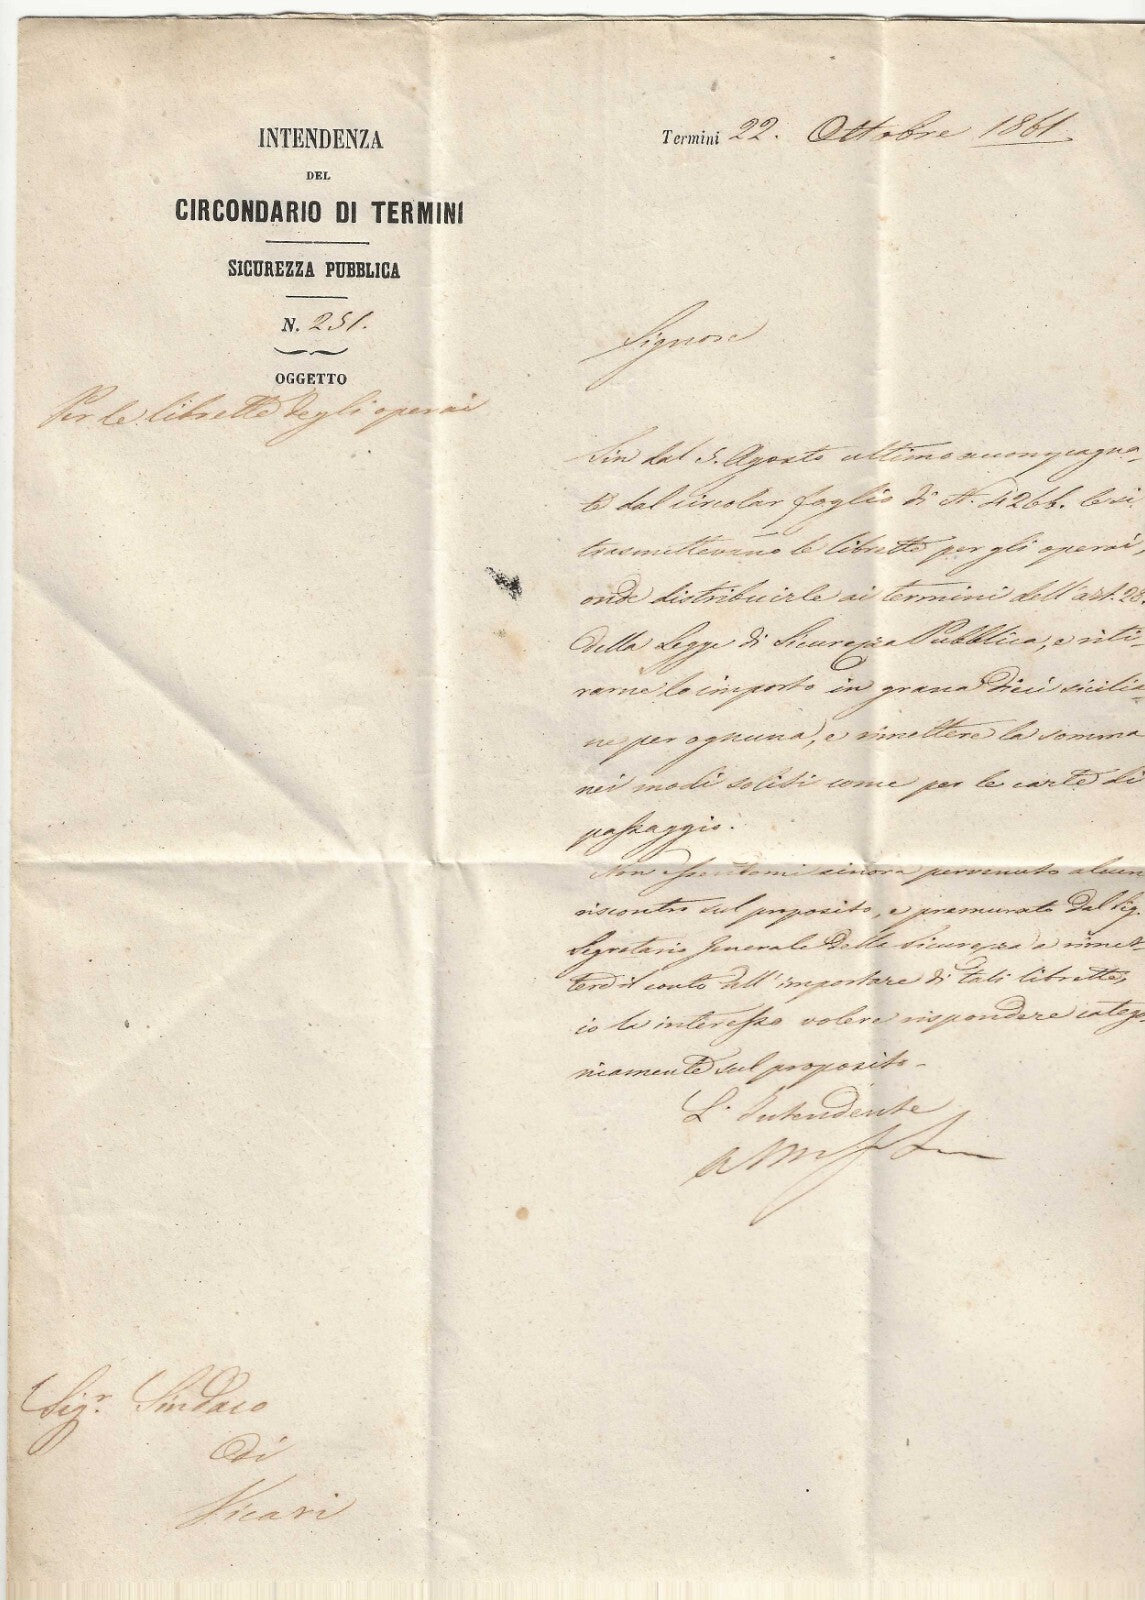 INTENDENZA
DEL
CIRCONDARIO DI TERMINI
SICUREZZA PUBBLICA
N. 251.
OGGETTO
Per le librette degli operai
Termini 22. Ottobre 1861.
Signore
Sin dal 5. Agosto ultimo accompagna-
te dal circolar foglio di N. 4266. le si
trasmettevano le librette per gli operai,
onde distribuirle ai termini dell'art. 28.
della Legge di Sicurezza Pubblica, e riti-
rarne lo importo in grana dieci sicilia-
ne per ognuna, e rimettere la somma
nei modi soliti come per le carte di
passaggio.
Non essendomi sinora pervenuto alcun
riscontro sul proposito, e premurato dal Sig.
Segretario Generale della Sicurezza a rimet-
tere il conto dell'importare di tali librette,
io la interesso volere rispondere catego-
ricamente sul proposito.
L'Intendente
Sigr. Sindaco
di
Vicari